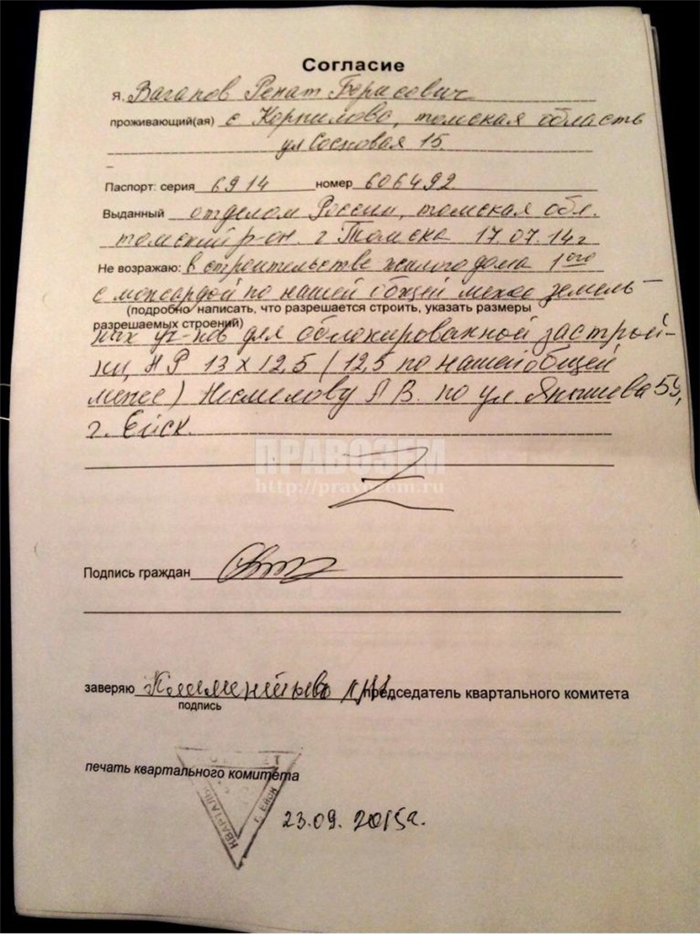 Согласие
Я, Вагапов Ренат Борисович
проживающий(ая) с Корнилово, томская область
ул Сосновая 15.
Паспорт: серия 6914 номер 606492
Выданный отделом России, томская обл.
томский р-он. г Томска 17.07.14г
Не возражаю: в строительстве жилого дома 1ого
с мансардой по нашей общей меже земель-
(подробно написать, что разрешается строить, указать размеры
разрешаемых строений)
ных уч-ков для облокированной застрой-
ки, НР 13 х 12,5 (12,5 по нашей общей
меже) Несмелову А В. по ул Янышева 59,
г. Ейск.
ПРАВОЗЕМ
http://pravozem.ru
Подпись граждан
заверяю председатель квартального комитета
подпись
печать квартального комитета
КВАРТАЛЬ
г. Ейск
23.09.2015г.